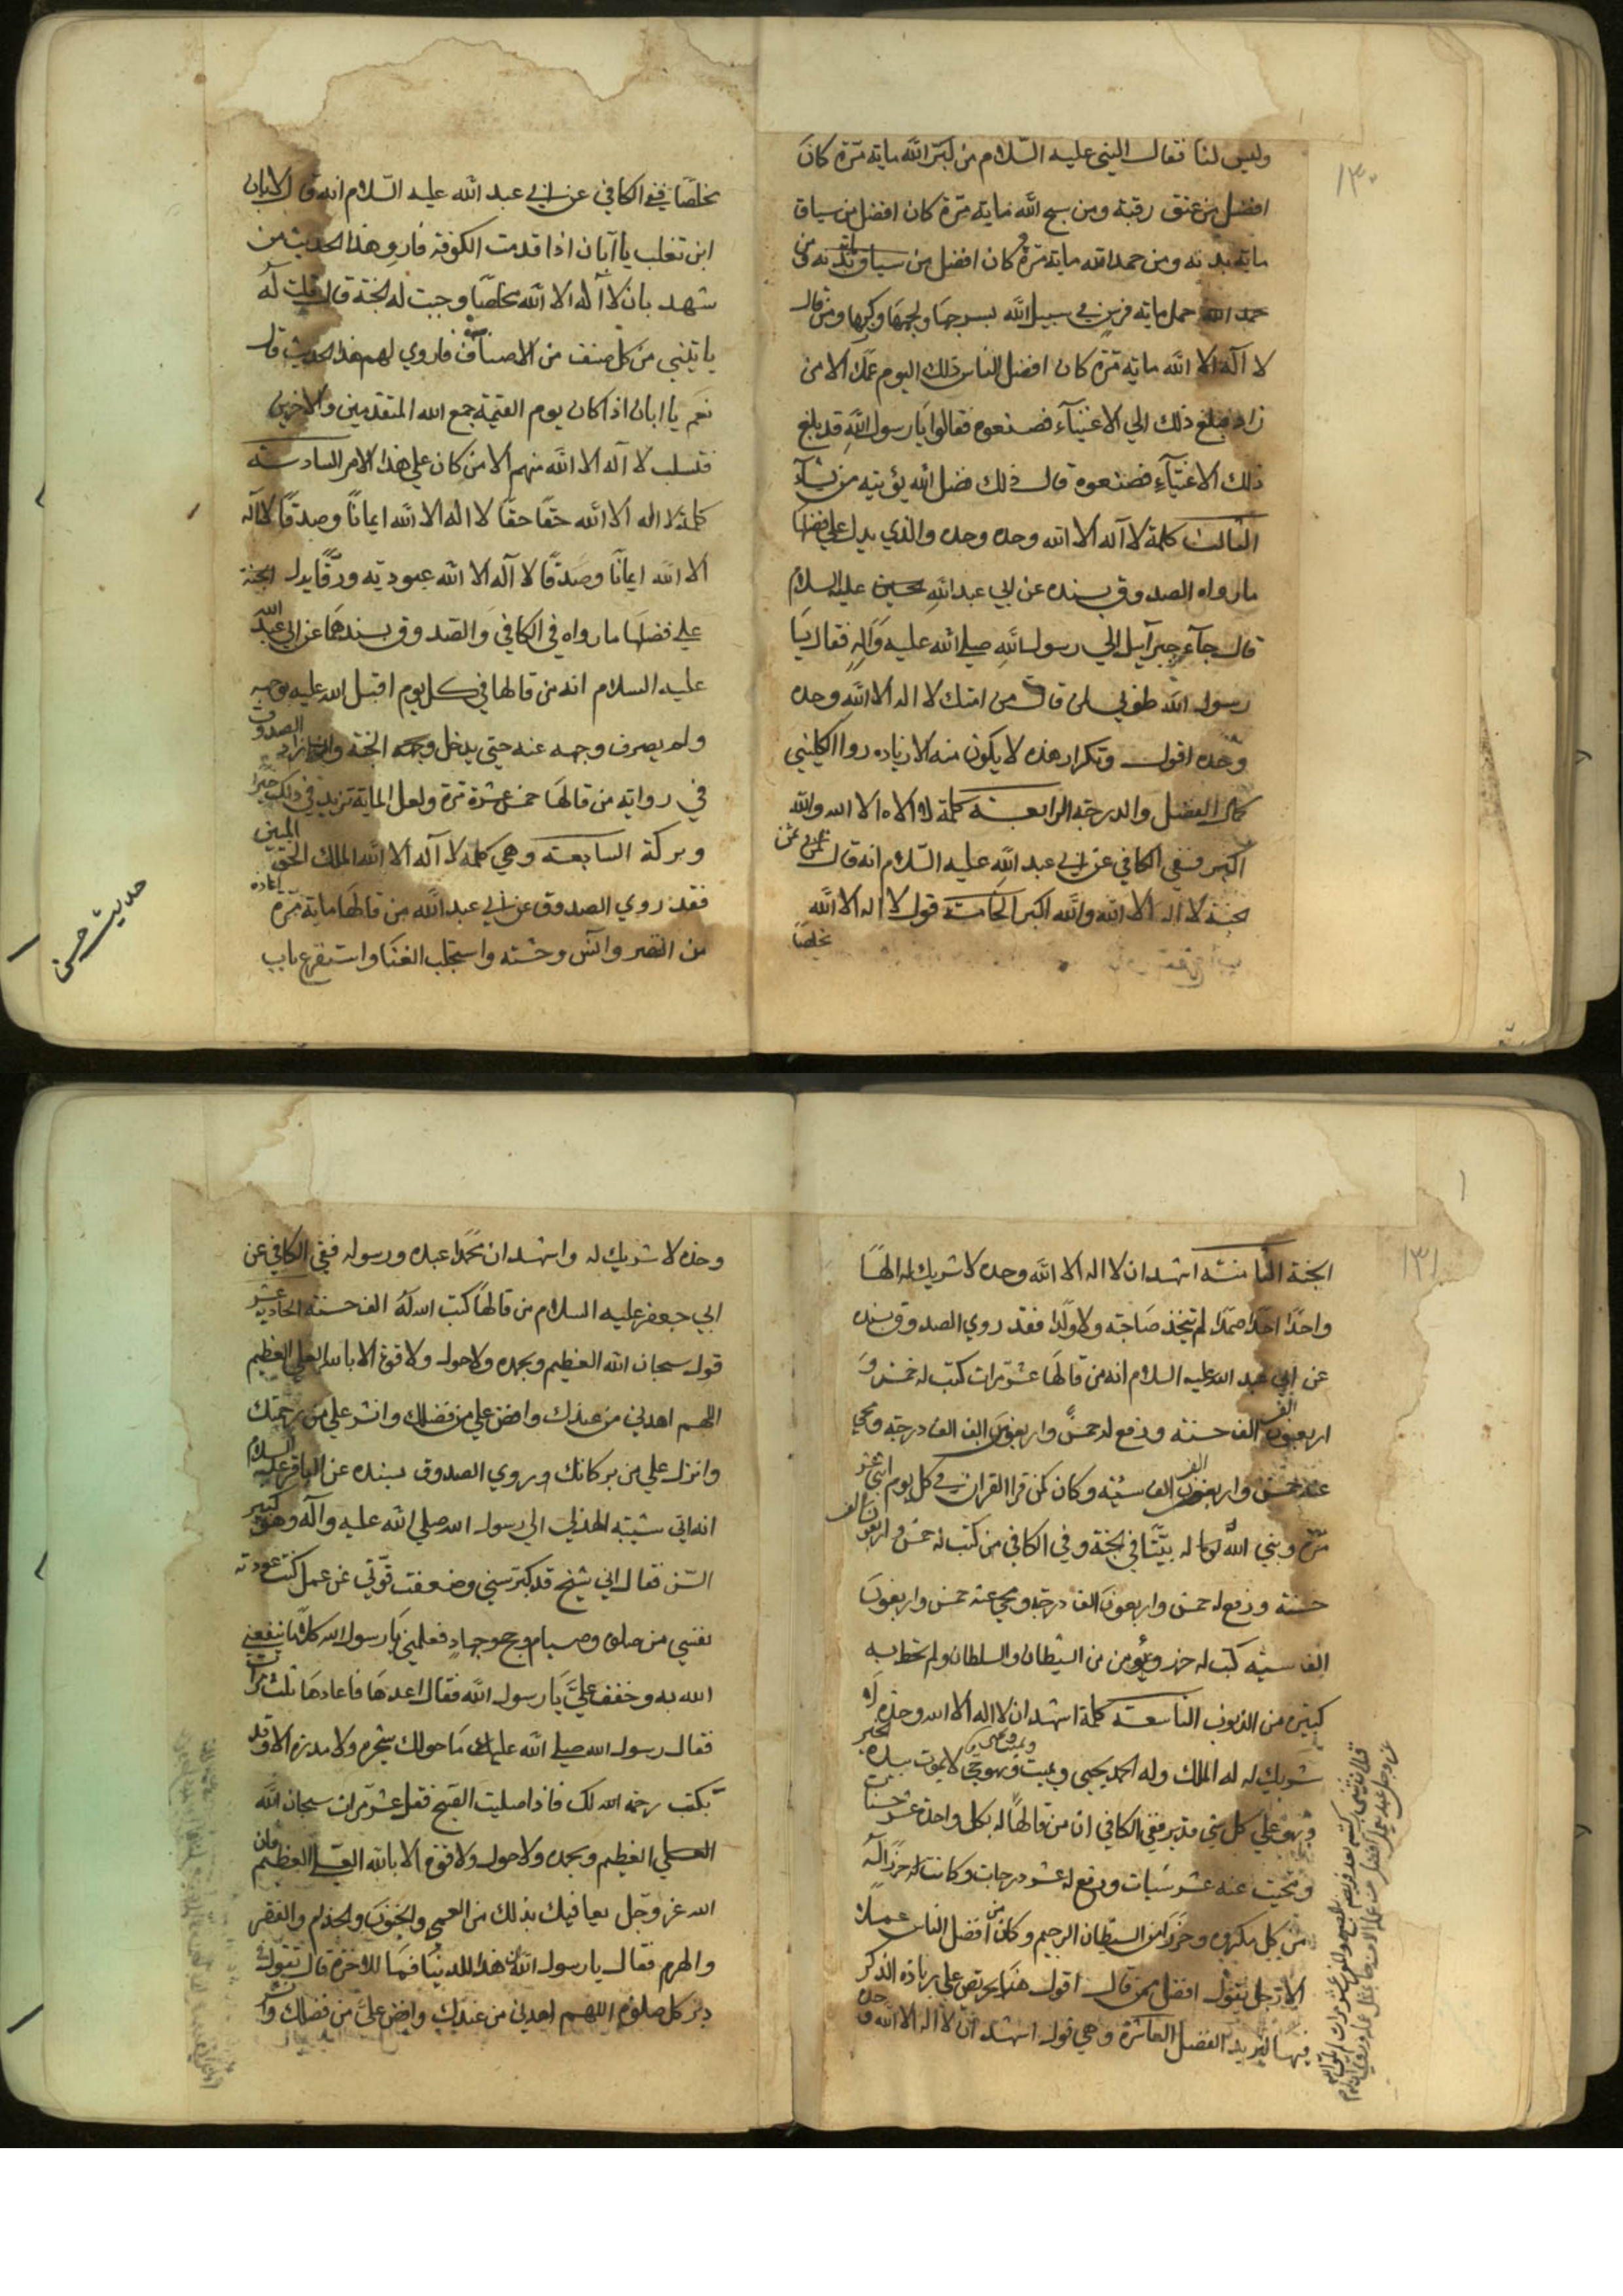 ١٣٠
وليس لنا فقال النبي عليه السّلام من كبّر الله ماية مرّة كان
افضل من عتق رقبة ومن سبح الله ماية مرّة كان افضل من سياق
ماية بدنة ومن حمد الله ماية مرّة كان افضل من سياق
حمد الله حمل ماية فرس في سبيل الله بسرجها ولجمها وركبها ومن قال
لا آله الا الله ماية مرّة كان افضل الناس ذلك اليوم عملا الا من
زاد فبلغ ذلك الي الاغنيآء فصنعوه فقالوا يا رسول الله قد بلغ
ذلك الاغنيآء فصنعوه قال ذلك فضل الله يؤتيه من يشآء
الثالث كلمة لا آله الا الله وحده وحده والذي يدل علي فضلها
ما رواه الصدوق بسنده عن ابي عبد الله عليه السلام
قال جآء جبرآئيل الي رسول الله صلي الله عليه وآله فقال يا
رسول الله طوبي لمن قال من امتك لا اله الا الله وحده
وحده اقول وتكرار هذه لا يكون منه الا زياده روا الكليني
كمال الفضل والدرجة الرابعة كلمة لا اله الا الله والله
اكبر ففي الكافي عن ابي عبد الله عليه السّلام انه قال ثمن
الجنة لا اله الا الله والله اكبر الخامسة قول لا اله الا الله
مخلصًا
مخلصًا ففي الكافي عن ابي عبد الله عليه السّلام انه قال لابان
ابن تغلب يا آبان اذا قدمت الكوفة فارو هذا الحديث من
شهد بان لا آله الا الله مخلصًا وجبت له الجنة قال قلت له
ياتيني من كل صنف من الاصناف فاروي لهم هذا الحديث قال
نعم يا ابان اذا كان يوم القيمة جمع الله المتقدمين والاخرين
فتسلب لا آله الا الله منهم الا من كان علي هذا الامر السادسة
كلمة لا اله الا الله حقًا حقًا لا اله الا الله ايمانًا وصدقًا لا آله
الا الله ايمانًا وصدقًا لا آله الا الله عبودية ورقًا يدل
علي فضلها ما رواه في الكافي والصدوق بسندهما عن ابي عبد الله
عليه السلام انه من قالها في كل يوم اقبل الله عليه بوجهه
ولم يصرف وجهه عنه حتي يدخل الجنة وزاد الصدوق
في رواية من قالها خمس عشرة مرة ولعل الماية تزيد في ذلك خيرًا
وبركة السابعة وهي كلمة لا آله الا الله الملك الحق المبين
فقد روي الصدوق عن ابي عبد الله من قالها ماية مرّة اعاذه
من الفقر وآنس وحشته واستجلب الغنا واستقرع باب
حديث حسن
١٣١
الجنة الثامنة اشهد ان لا اله الا الله وحده لا شريك له الهًا
واحدًا احدًا صمدًا لم يتخذ صاحبة ولا ولدًا فقد روي الصدوق بسنده
عن ابي عبد الله عليه السلام انه من قالها عشر مرات كتب له خمس و
اربعون الف الف حسنة ورفع له خمس واربعون الف الف درجة ومحي
عنه خمس واربعون الف الف سيئة وكان كمن قرا القران في كل يوم اثني عشر
مرّة وبني الله له بيتًا في الجنة وفي الكافي من كتب له خمس واربعون الف
حسنة ورفع له خمس واربعون الف درجة ومحي عنه خمس واربعون
الف سيئة كتب له حرز ويؤمن من الشيطان والسلطان ولم تحط به
كبيرة من الذنوب التاسعة كلمة اشهد ان لا اله الا الله وحده لا
شريك له له الملك وله الحمد يحيي ويميت ويميت ويحيي وهو حي لا يموت بيده الخير
وهو علي كل شي قدير ففي الكافي ان من قالها له بكل واحدة عشر حسنات
ومحيت عنه عشر سيات ورفع له عشر درجات وكانت له حرزًا
من كل مكروه وحرزًا من الشيطان الرجيم وكان من افضل الناس عملا
الا رجل يقول افضل ممن قال اقول هنا يحرص علي زيادة الذكر
فيها ليزيد الفضل العاشرة وهي قول اشهد ان لا اله الا الله وحده
وحده لا شريك له واشهد ان محمدًا عبده ورسوله ففي الكافي عن
ابي جعفر عليه السلام من قالها كتب الله له الف حسنة الحادية عشر
قول سبحان الله العظيم وبحمده ولا حول ولا قوة الا بالله العلي العظيم
اللهم اهدني من عندك وافض علي من فضلك وانشر علي من رحمتك
وانزل علي من بركاتك وروي الصدوق بسنده عن الباقر عليه السلام
انه اتي شيبة الهذلي الي رسول الله صلي الله عليه وآله وهو كبير
السّن فقال اني شيخ قد كبر سني وضعفت قوّتي عن عمل كنت عودته
نفسي من صلوة وصيام وحج وجهاد فعلمني يا رسول الله كلامًا ينفعني
الله به وخفف عليَّ يا رسول الله فقال اعدها فاعادها ثلث مرات
فقال رسول الله صلي الله عليه ما حولك شجرة ولا مدرة الا وقد
بكت رحمة الله لك فاذا صليت الصبح فقل عشر مرات سبحان الله
العلي العظيم وبحمده ولا حول ولا قوة الا بالله العلي العظيم فان
الله عز وجّل يعافيك بذلك من العمي والجنون والجذام والفقر
والهرم فقال يا رسول الله هذا للدنيا فما للاخرة قال تقول في
دبر كل صلوة اللهم اهدني من عندك وافض عليَّ من فضلك و